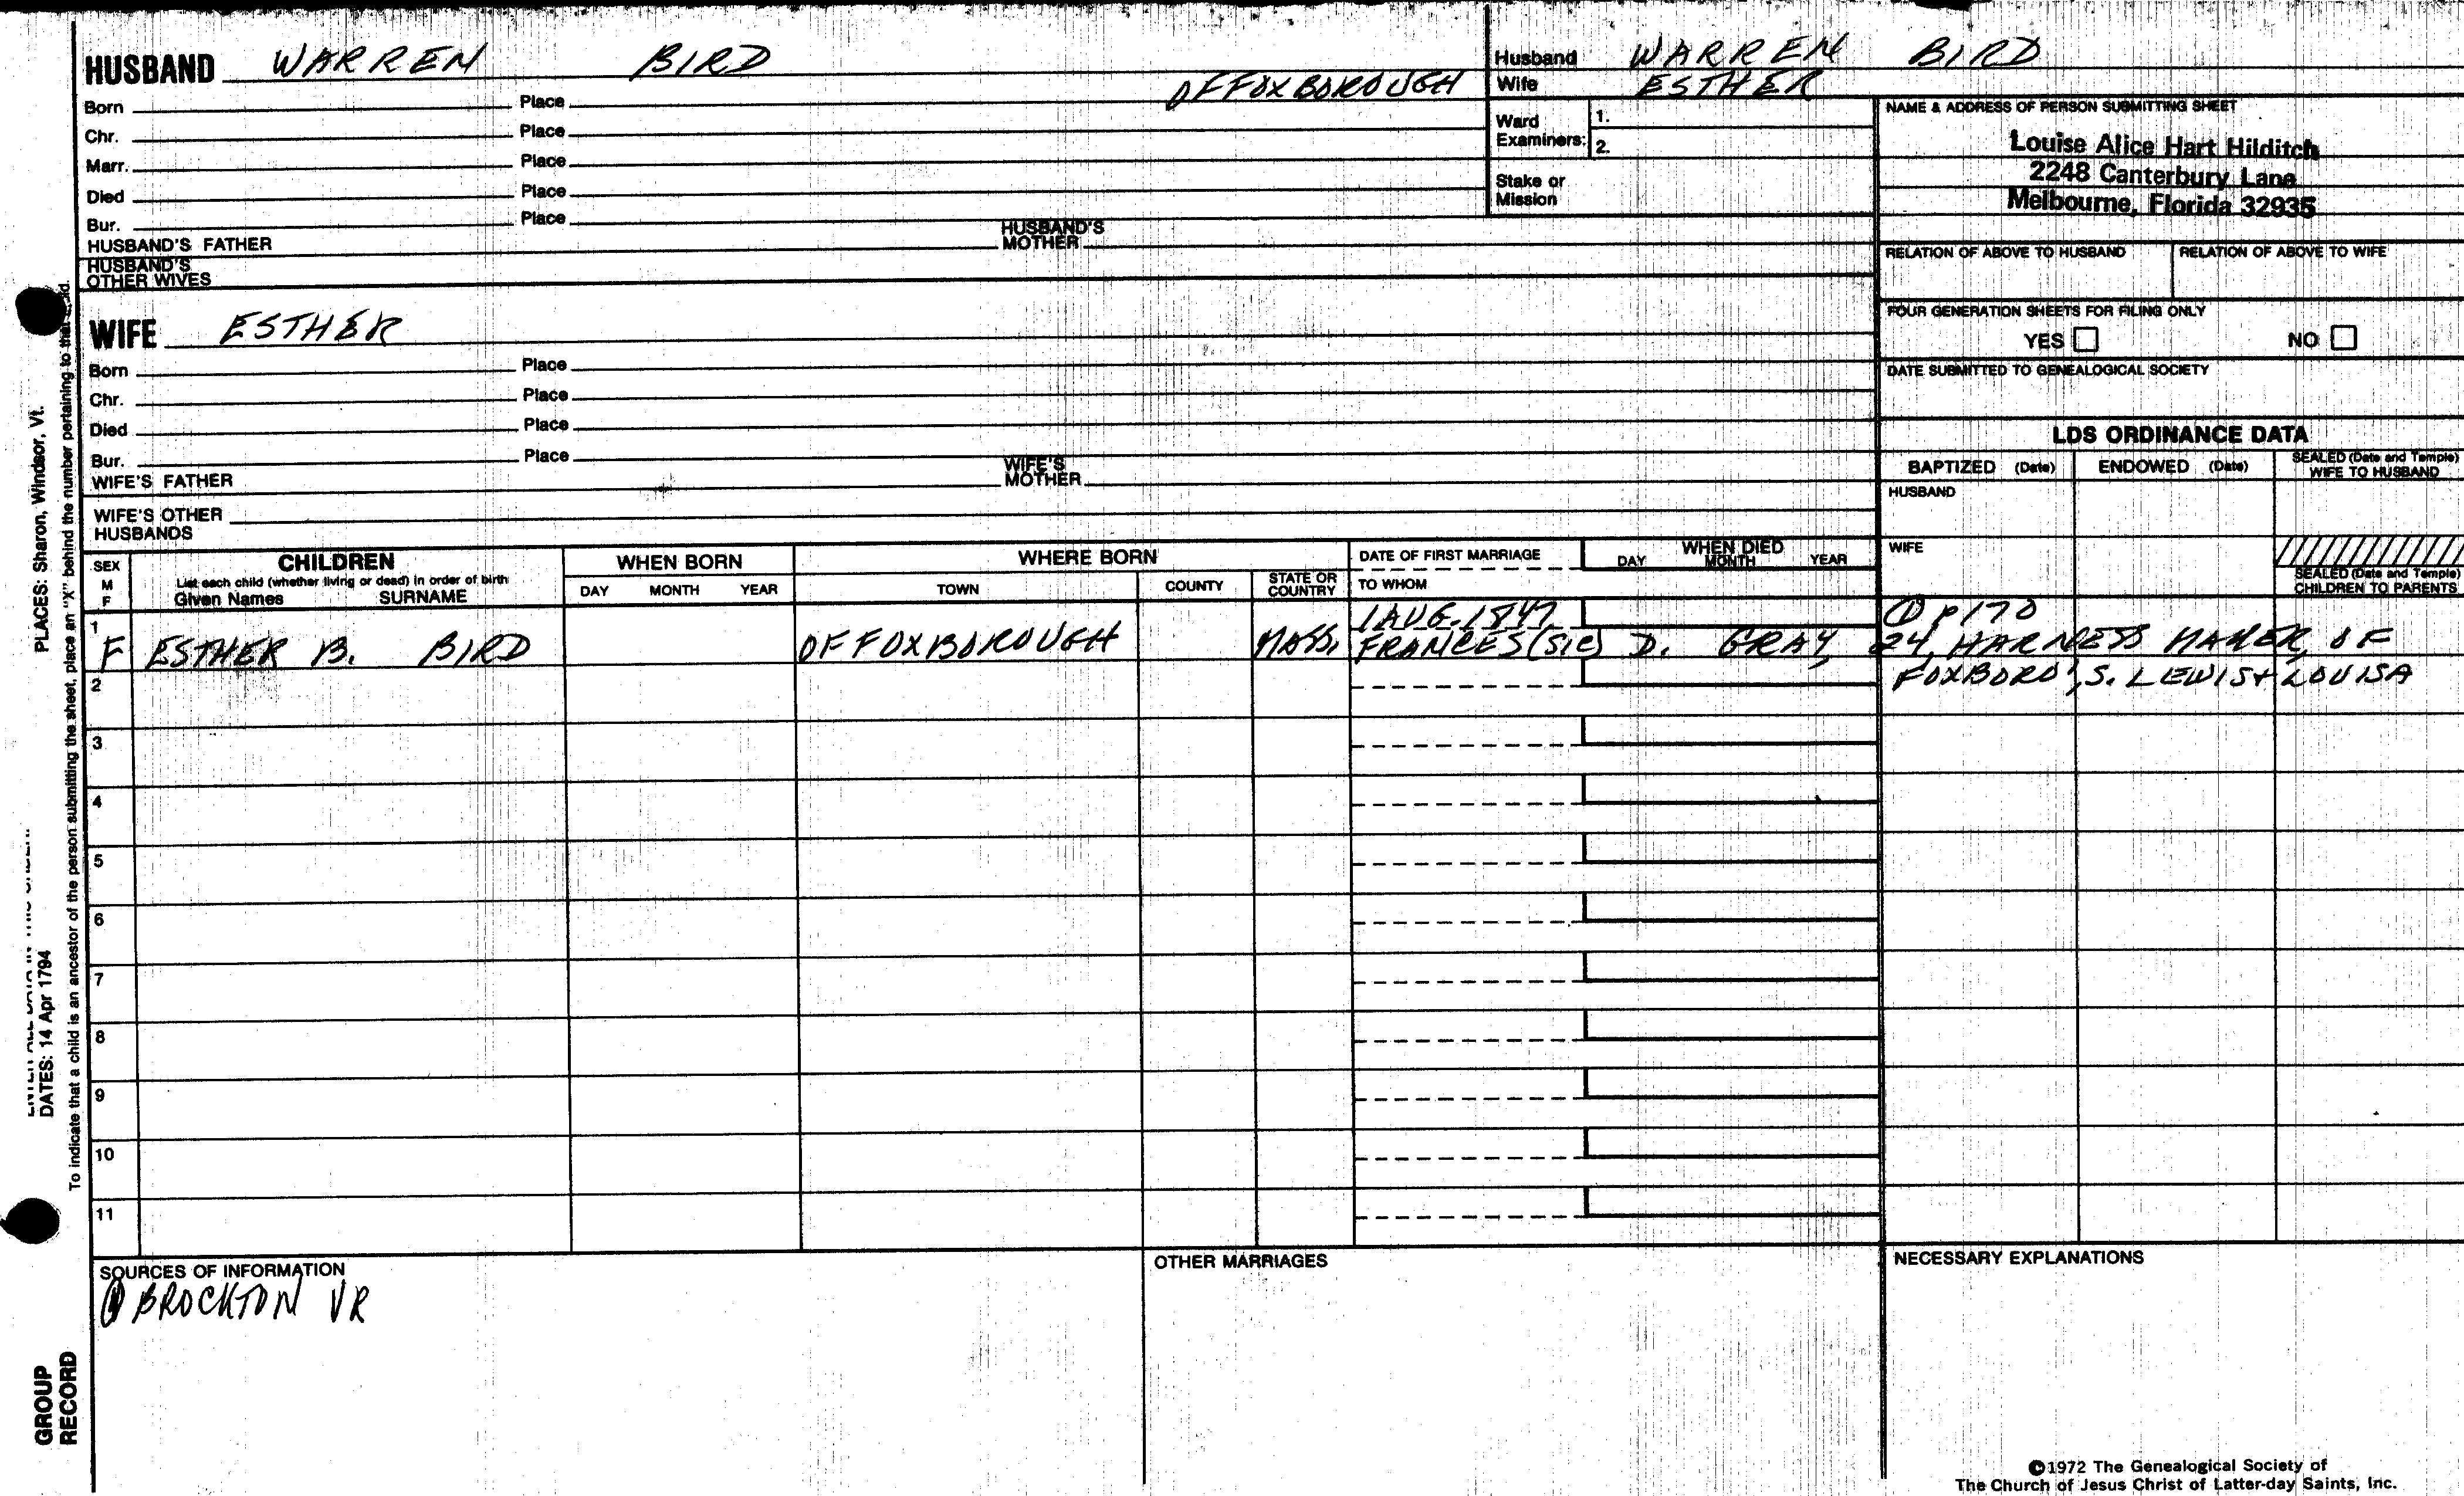 HUSBAND WARREN BIRD
OF FOXBOROUGH
Born Place
Chr. Place
Marr. Place
Died Place
Bur. Place
HUSBAND'S FATHER HUSBAND'S MOTHER
HUSBAND'S OTHER WIVES
Husband WARREN BIRD
Wife ESTHER
Ward Examiners: 1.
2.
Stake or Mission
NAME & ADDRESS OF PERSON SUBMITTING SHEET
Louise Alice Hart Hilditch
2248 Canterbury Lane
Melbourne, Florida 32935
RELATION OF ABOVE TO HUSBAND RELATION OF ABOVE TO WIFE
FOUR GENERATION SHEETS FOR FILING ONLY
YES NO
DATE SUBMITTED TO GENEALOGICAL SOCIETY
WIFE ESTHER
Born Place
Chr. Place
Died Place
Bur. Place
WIFE'S FATHER WIFE'S MOTHER
WIFE'S OTHER HUSBANDS
LDS ORDINANCE DATA
BAPTIZED (Date) ENDOWED (Date) SEALED (Date and Temple) WIFE TO HUSBAND
HUSBAND
WIFE
SEALED (Date and Temple) CHILDREN TO PARENTS
SEX M F
CHILDREN
List each child (whether living or dead) in order of birth
Given Names SURNAME
WHEN BORN
DAY MONTH YEAR
WHERE BORN
TOWN COUNTY STATE OR COUNTRY
DATE OF FIRST MARRIAGE
TO WHOM
WHEN DIED
DAY MONTH YEAR
1 1 AUG. 1847 ① P170
F ESTHER B. BIRD OF FOXBOROUGH MASS. FRANCES (SIC) D. GRAY, 24, HARNESS MAKER, OF
2 FOXBORO', S. LEWIS + LOUISA
3
4
5
6
7
8
9
10
11
SOURCES OF INFORMATION
① BROCKTON VR
OTHER MARRIAGES
NECESSARY EXPLANATIONS
©1972 The Genealogical Society of
The Church of Jesus Christ of Latter-day Saints, Inc.
PLACES: Sharon, Windsor, Vt.
DATES: 14 Apr 1794
To indicate that a child is an ancestor of the person submitting the sheet, place an "X" behind the number pertaining to that
GROUP
RECORD